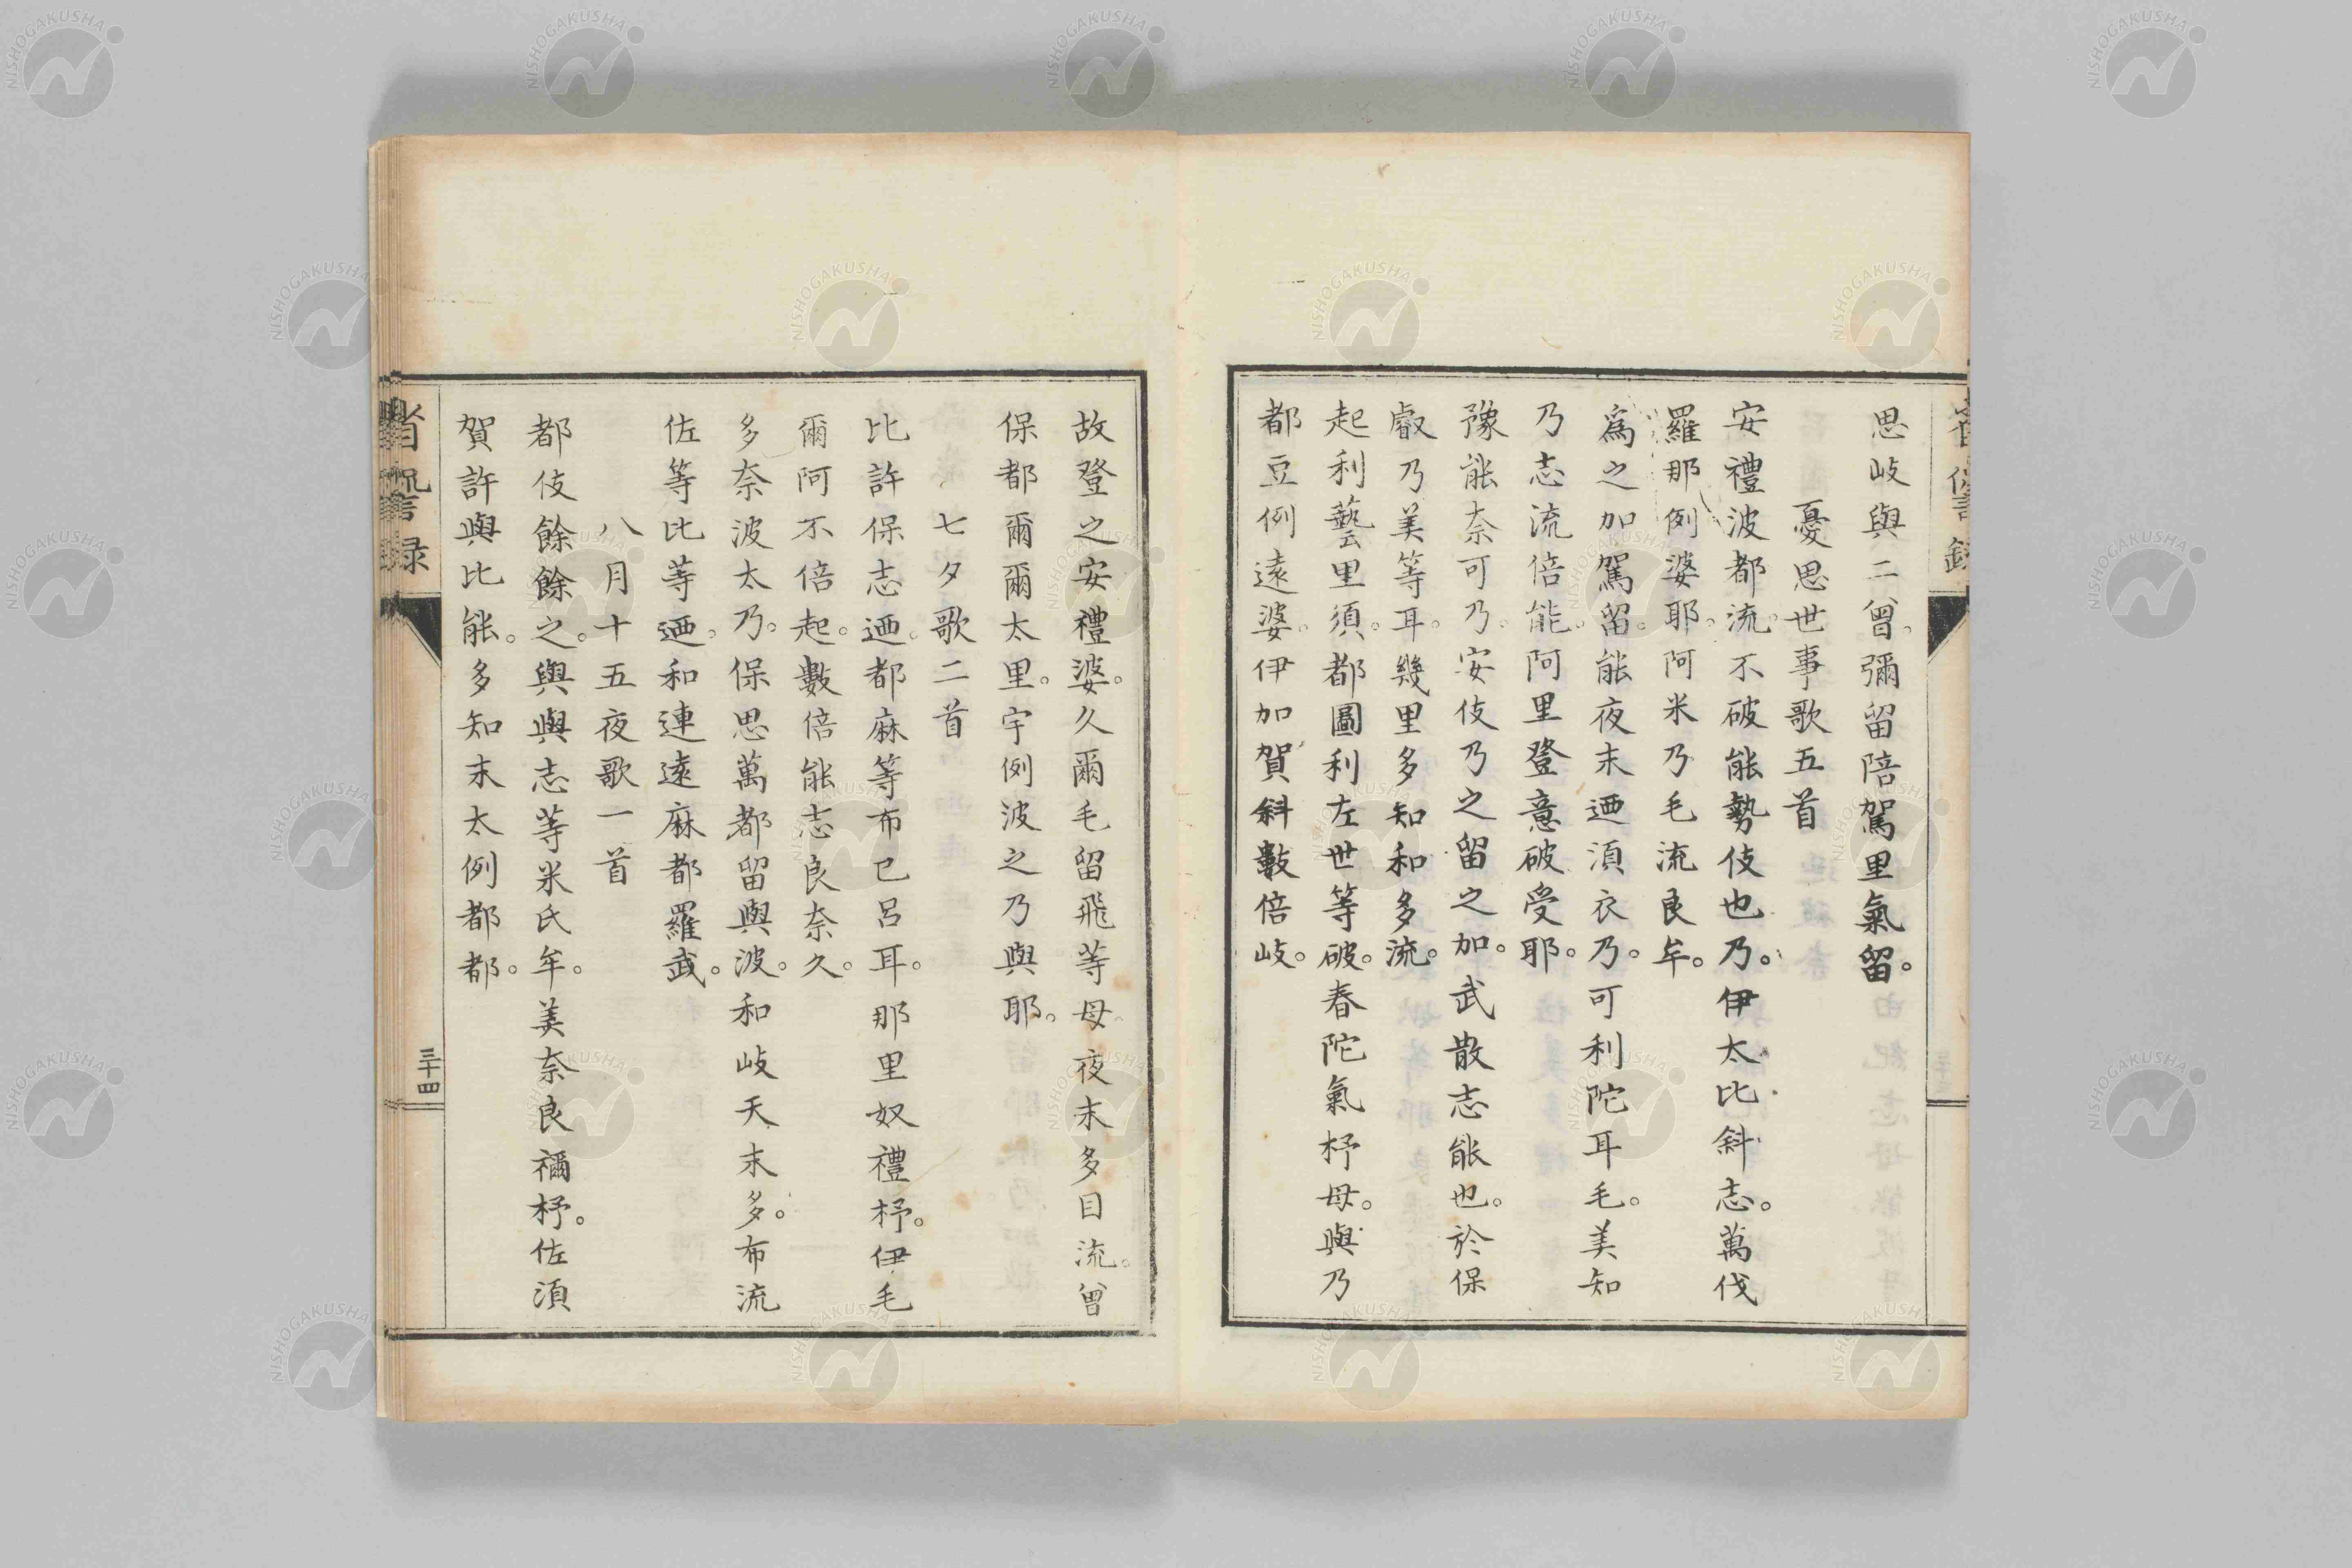 思岐與二曾。彌留陪駕里氣留。
憂思世事歌五首
安禮波都流。不破能勢伎也乃。伊太比斜志。萬伐
羅那例婆耶。阿米乃毛流良牟。
爲之加駕留。能夜末迺須衣乃。可利陀耳毛。美知
乃志流倍能。阿里登意破受耶。
豫能奈可乃。安伎乃之留之加。武散志能也。於保
叡乃美等耳。幾里多知和多流。
起利藝里須。都圖利左世等破。春陀氣杼母。與乃
都豆例遠婆。伊加賀斜數倍岐。
故登之安禮婆。久爾毛留飛等母。夜末多目流。曾
保都爾爾太里。宇例波之乃與耶。
七夕歌二首
比許保志迺。都麻等布已呂耳。那里奴禮杼。伊毛
爾阿不倍起。數倍能志良奈久。
多奈波太乃。保思萬都留與波。和岐天末多。布流
佐等比等迺。和連遠麻都羅武。
八月十五夜歌一首
都伎餘餘之。與與志等米氐牟。美奈良禰杼。佐須
賀許與比能。多知末太例都都。
省諐録
三十四
NISHOGAKUSHA